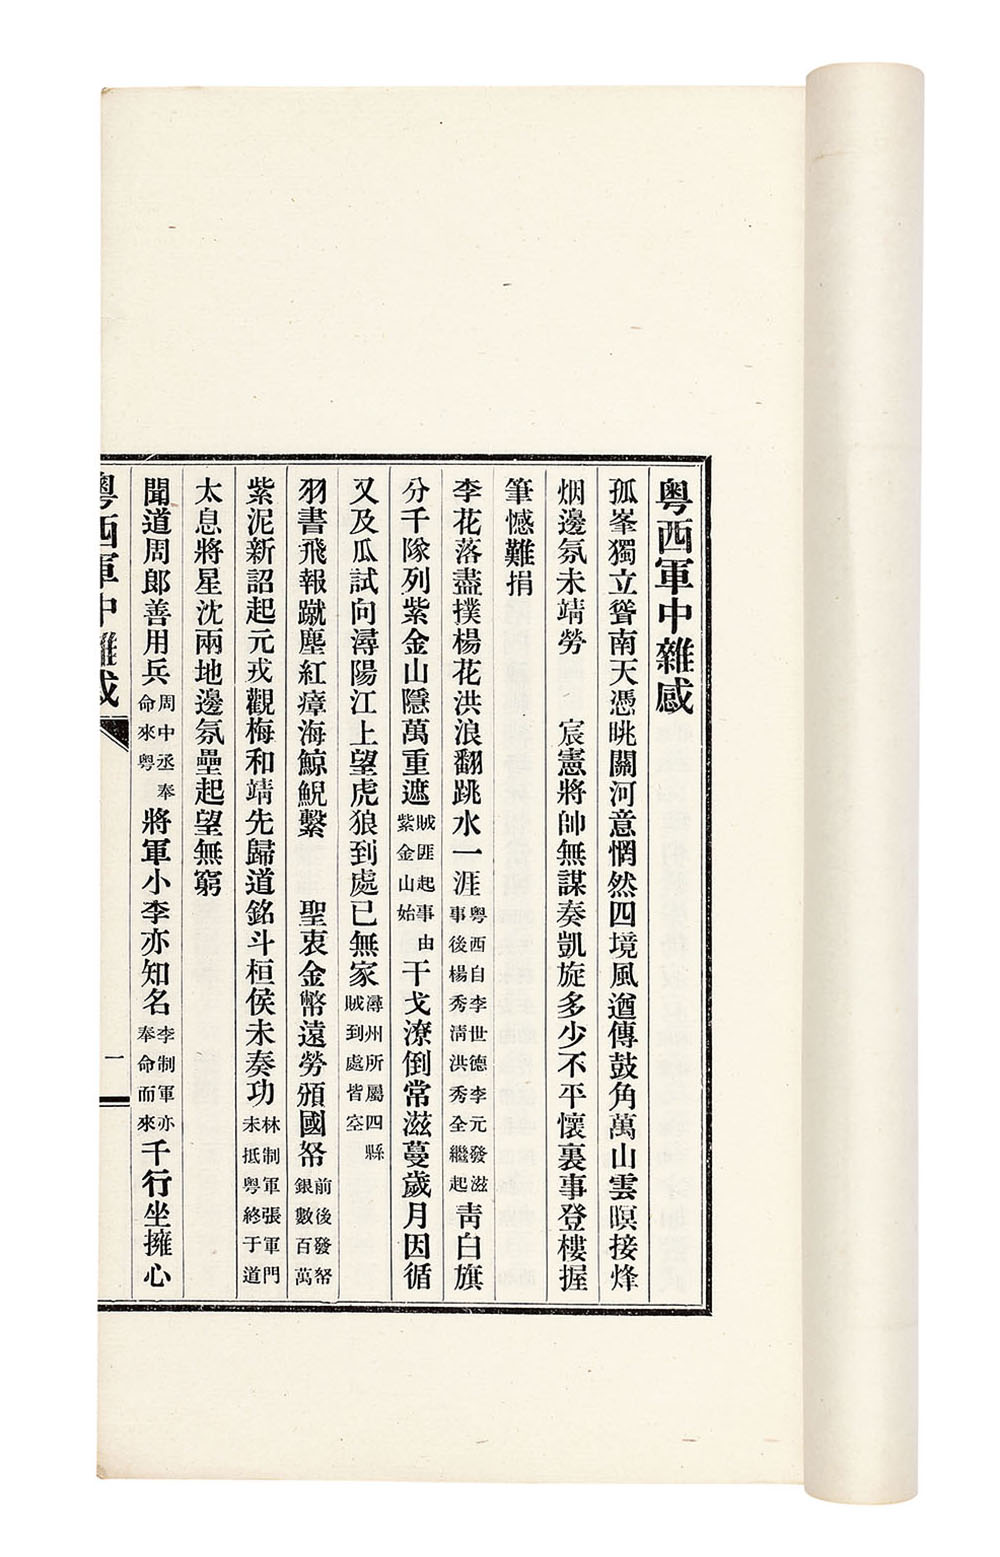 粤西軍中雜感
孤峯獨立聳南天憑眺關河意惘然四境風遒傳鼓角萬山雲暝接烽
烟邊氛未靖勞　宸憲將帥無謀奏凱旋多少不平懷裏事登樓握
筆憾難捐
李花落盡撲楊花洪浪翻跳水一涯粤西自李世德李元發滋事後楊秀淸洪秀全繼起靑白旗
分千隊列紫金山隱萬重遮賊匪起事由紫金山始干戈潦倒常滋蔓歲月因循
又及瓜試向潯陽江上望虎狼到處已無家潯州所屬四縣賊到處皆空
羽書飛報蹴塵紅瘴海鯨鯢繫　聖衷金幣遠勞頒國帑前後發帑銀數百萬
紫泥新詔起元戎觀梅和靖先歸道銘斗桓侯未奏功林制軍張軍門未抵粤終于道
太息將星沈兩地邊氛壘起望無窮
聞道周郞善用兵周中丞奉命來粤將軍小李亦知名李制軍亦奉命而來千行坐擁心
粤西軍中雜感
一